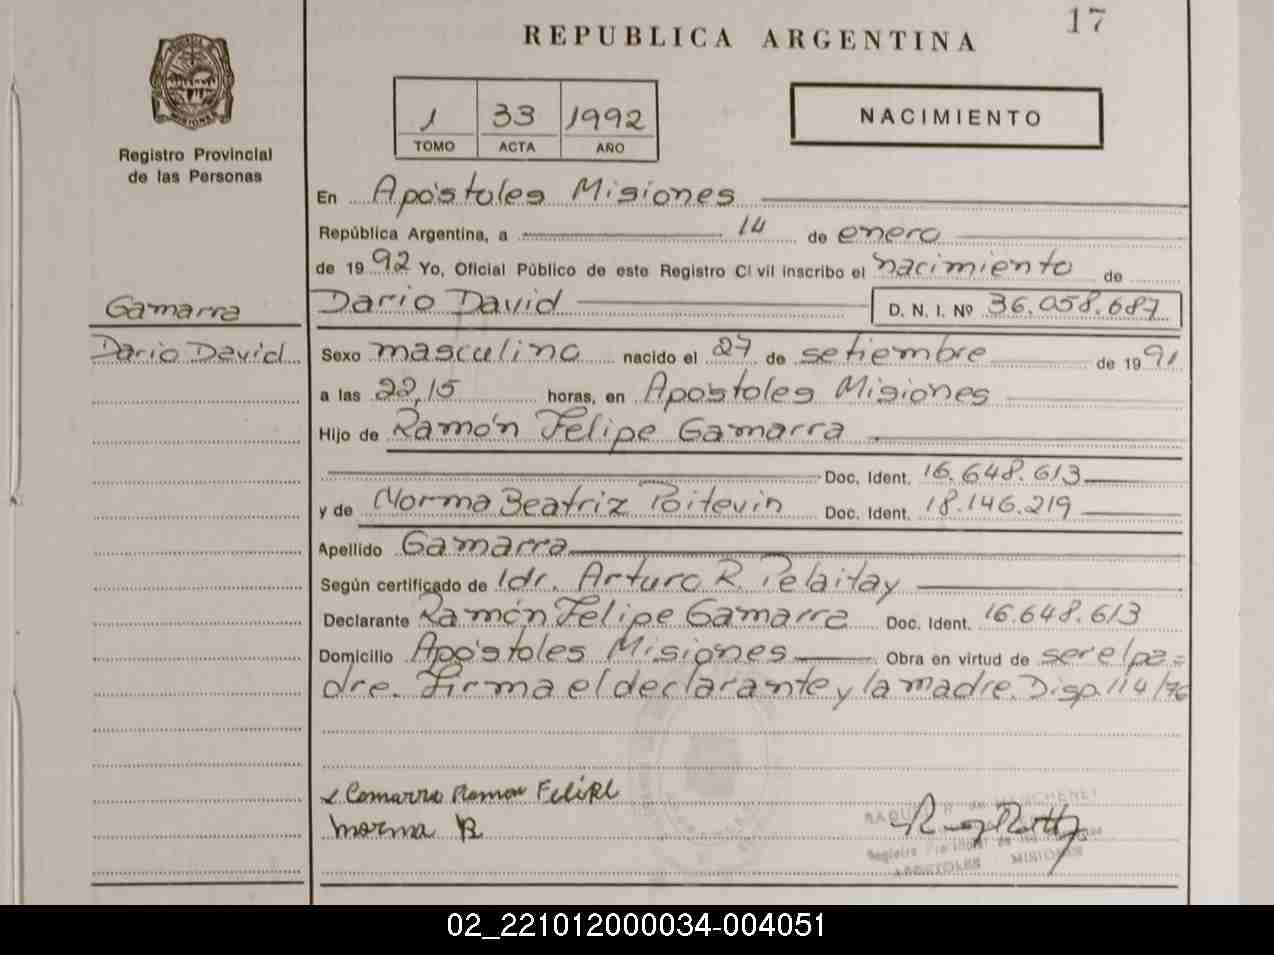 17
REPUBLICA ARGENTINA
MISIONES
Registro Provincial
de las Personas
1 33 1992
TOMO ACTA AÑO
NACIMIENTO
En Apóstoles Misiones
República Argentina, a 14 de enero
de 1992 Yo, Oficial Público de este Registro Civil inscribo el nacimiento de
Gamarra
Dario David
Dario David D. N. I. Nº 36.058.687
Sexo masculino nacido el 27 de setiembre de 1991
a las 22,15 horas, en Apóstoles Misiones
Hijo de Ramón Felipe Gamarra
Doc. Ident. 16.648.613
y de Norma Beatriz Poitevin Doc. Ident. 18.146.219
Apellido Gamarra
Según certificado de Arturo R. Pelaitay
Declarante Ramón Felipe Gamarra Doc. Ident. 16.648.613
Domicilio Apóstoles Misiones Obra en virtud de ser el pa=
dre. Firma el declarante y la madre. Disp. 114/76
Ramon Felipe
Norma B
APOSTOLES MISIONES
02_221012000034-004051